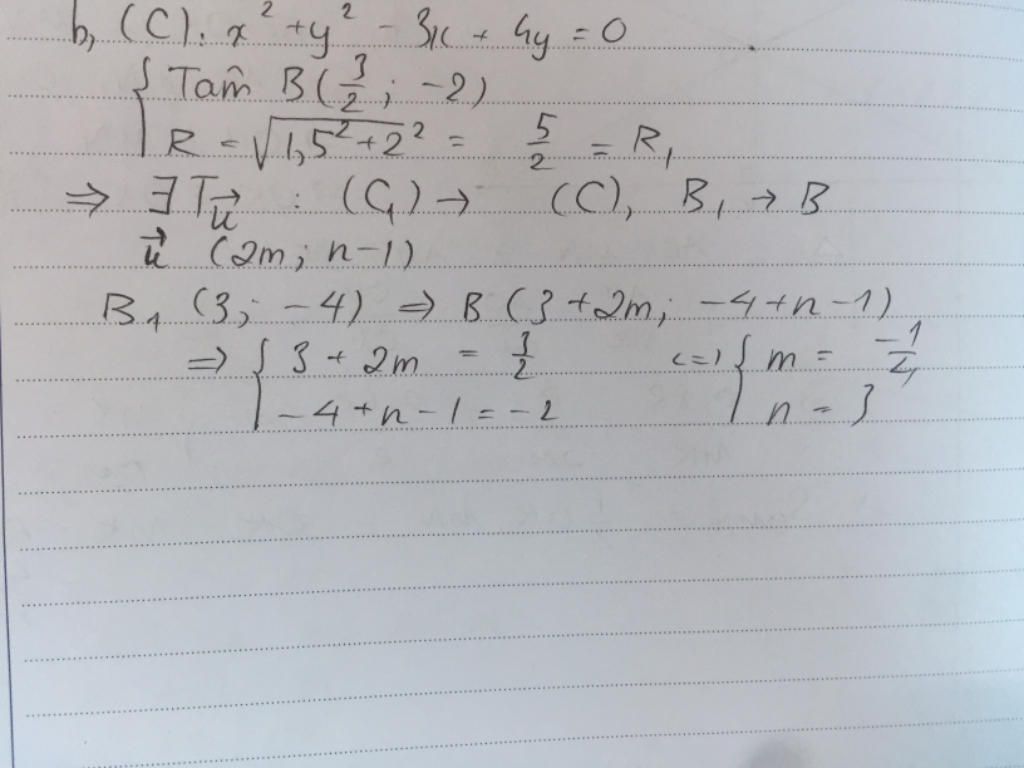 b, (C): x² + y² - 3x + 4y = 0
{ Tâm B(3/2; -2)
R = √(1,5² + 2²) = 5/2 = R₁
⇒ ∃ T_u⃗ : (C₁) → (C), B₁ → B
u⃗ (2m; n-1)
B₁ (3; -4) ⇒ B (3+2m; -4+n-1)
⇒ { 3 + 2m = 3/2 <=> { m = -1/4
-4 + n - 1 = -2 n = 3